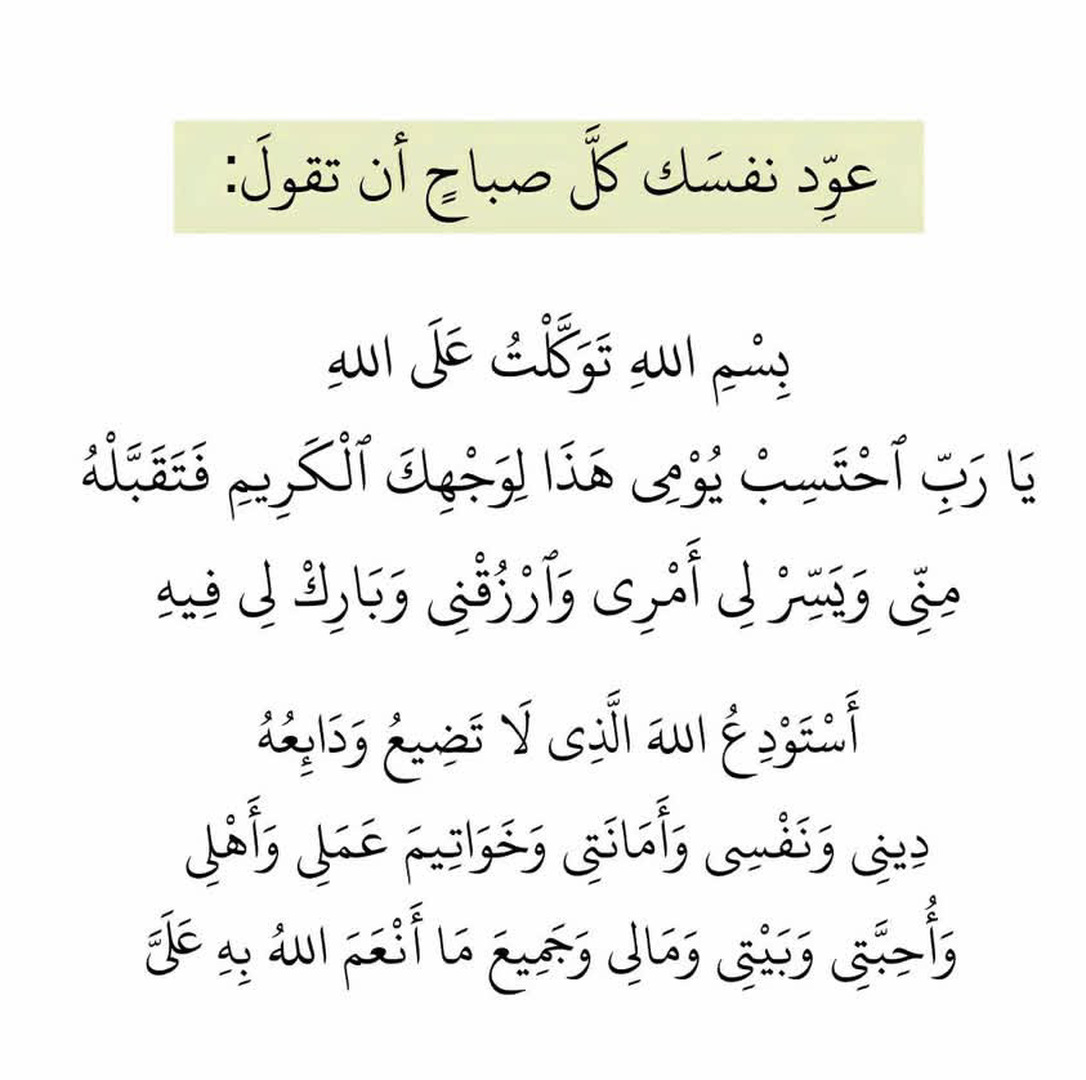 عوِّد نفسَك كلَّ صباحٍ أن تقولَ:
بِسْمِ اللهِ تَوَكَّلْتُ عَلَى اللهِ
يَا رَبِّ ٱحْتَسِبْ يُوْمِى هَذَا لِوَجْهِكَ ٱلْكَرِيمِ فَتَقَبَّلْهُ
مِنِّى وَيَسِّرْ لِى أَمْرِى وَٱرْزُقْنِى وَبَارِكْ لِى فِيهِ
أَسْتَوْدِعُ اللهَ الَّذِى لَا تَضِيعُ وَدَايِعُهُ
دِينِى وَنَفْسِى وَأَمَانَتِى وَخَوَاتِيمَ عَمَلِى وَأَهْلِى
وَأُحِبَّتِى وَبَيْتِى وَمَالِى وَجَمِيعَ مَا أَنْعَمَ اللهُ بِهِ عَلَىَّ